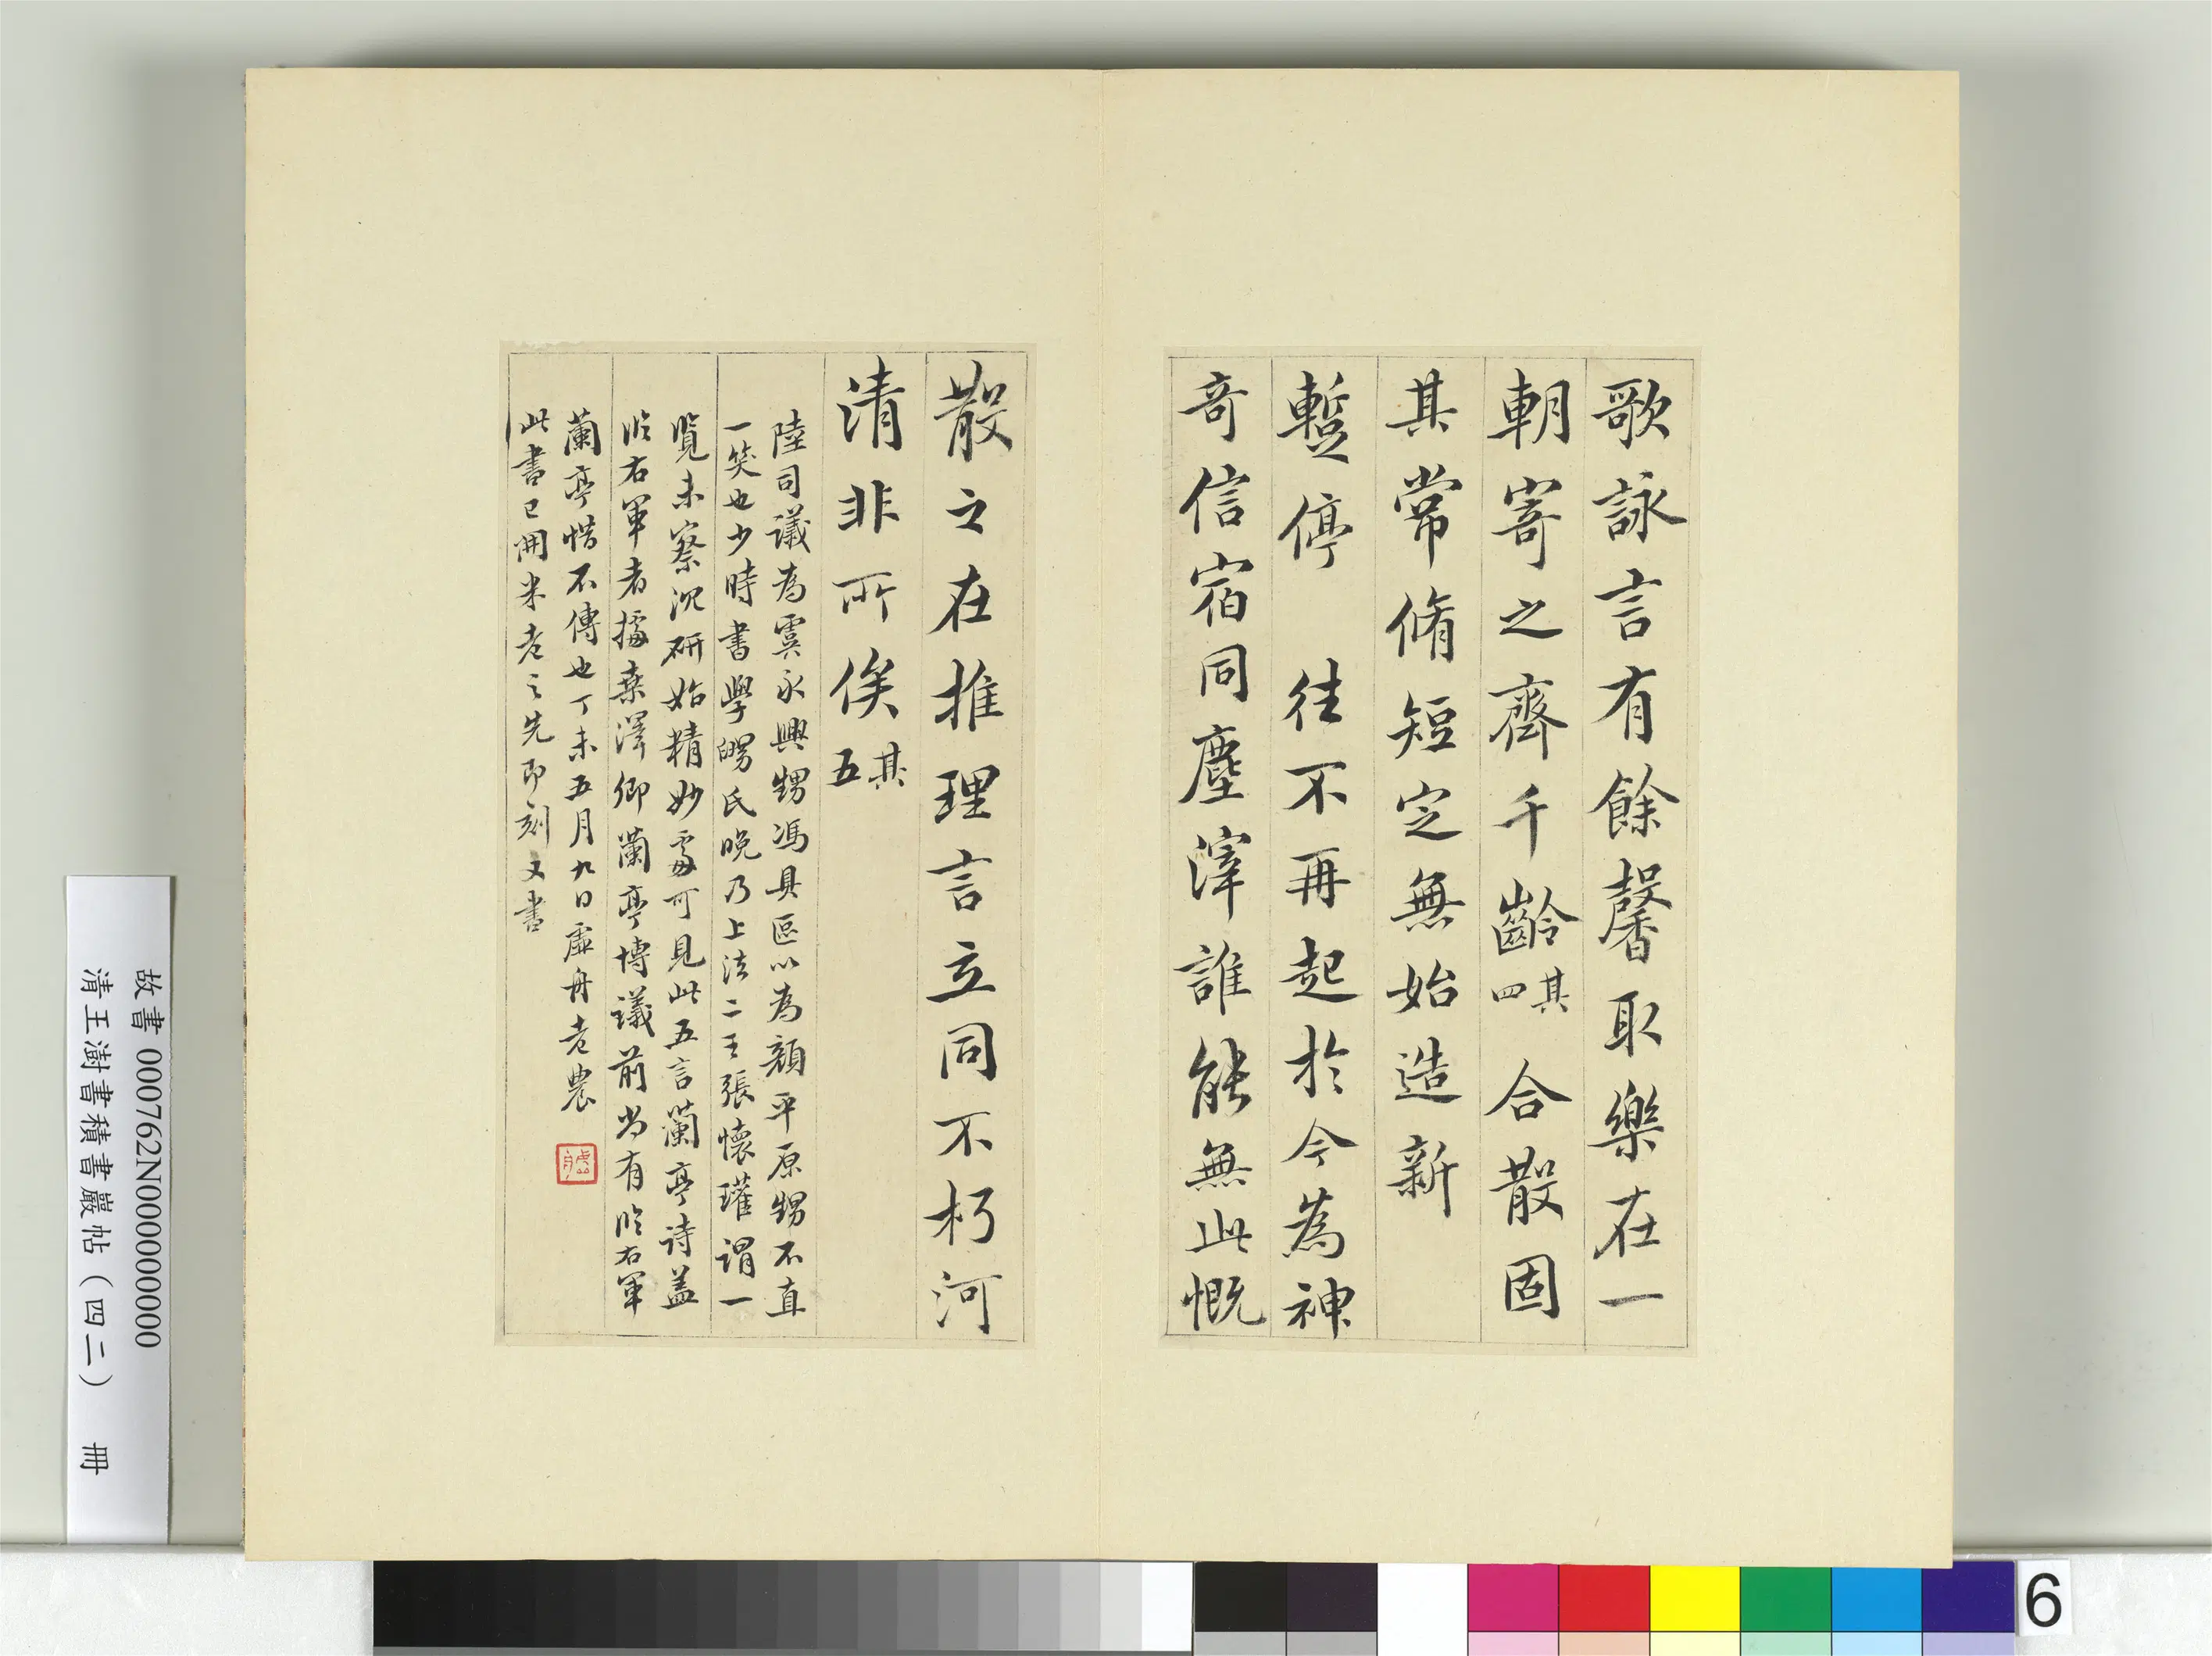 歌詠言有餘馨取樂在一
朝寄之齊千齡其四 合散固
其常脩短定無始造新
蹔停 往不再起於今為神
奇信宿同塵滓誰能無此慨
散之在推理言立同不朽河
清非所俟其五
陸司議為虞永興甥馮具區以為顏平原甥不直
一笑也少時書學舅氏晚乃上法二王張懷瓘謂一
覽未察沉研始精妙處可見此五言蘭亭詩蓋
臨右軍者據桑澤卿蘭亭博議前尚有臨右軍
蘭亭惜不傳也丁未五月九日虛舟老農
此書已開米老之先即刻又書
虛舟
故書 000762N000000000
清王澍書積書巖帖(四二) 冊
6